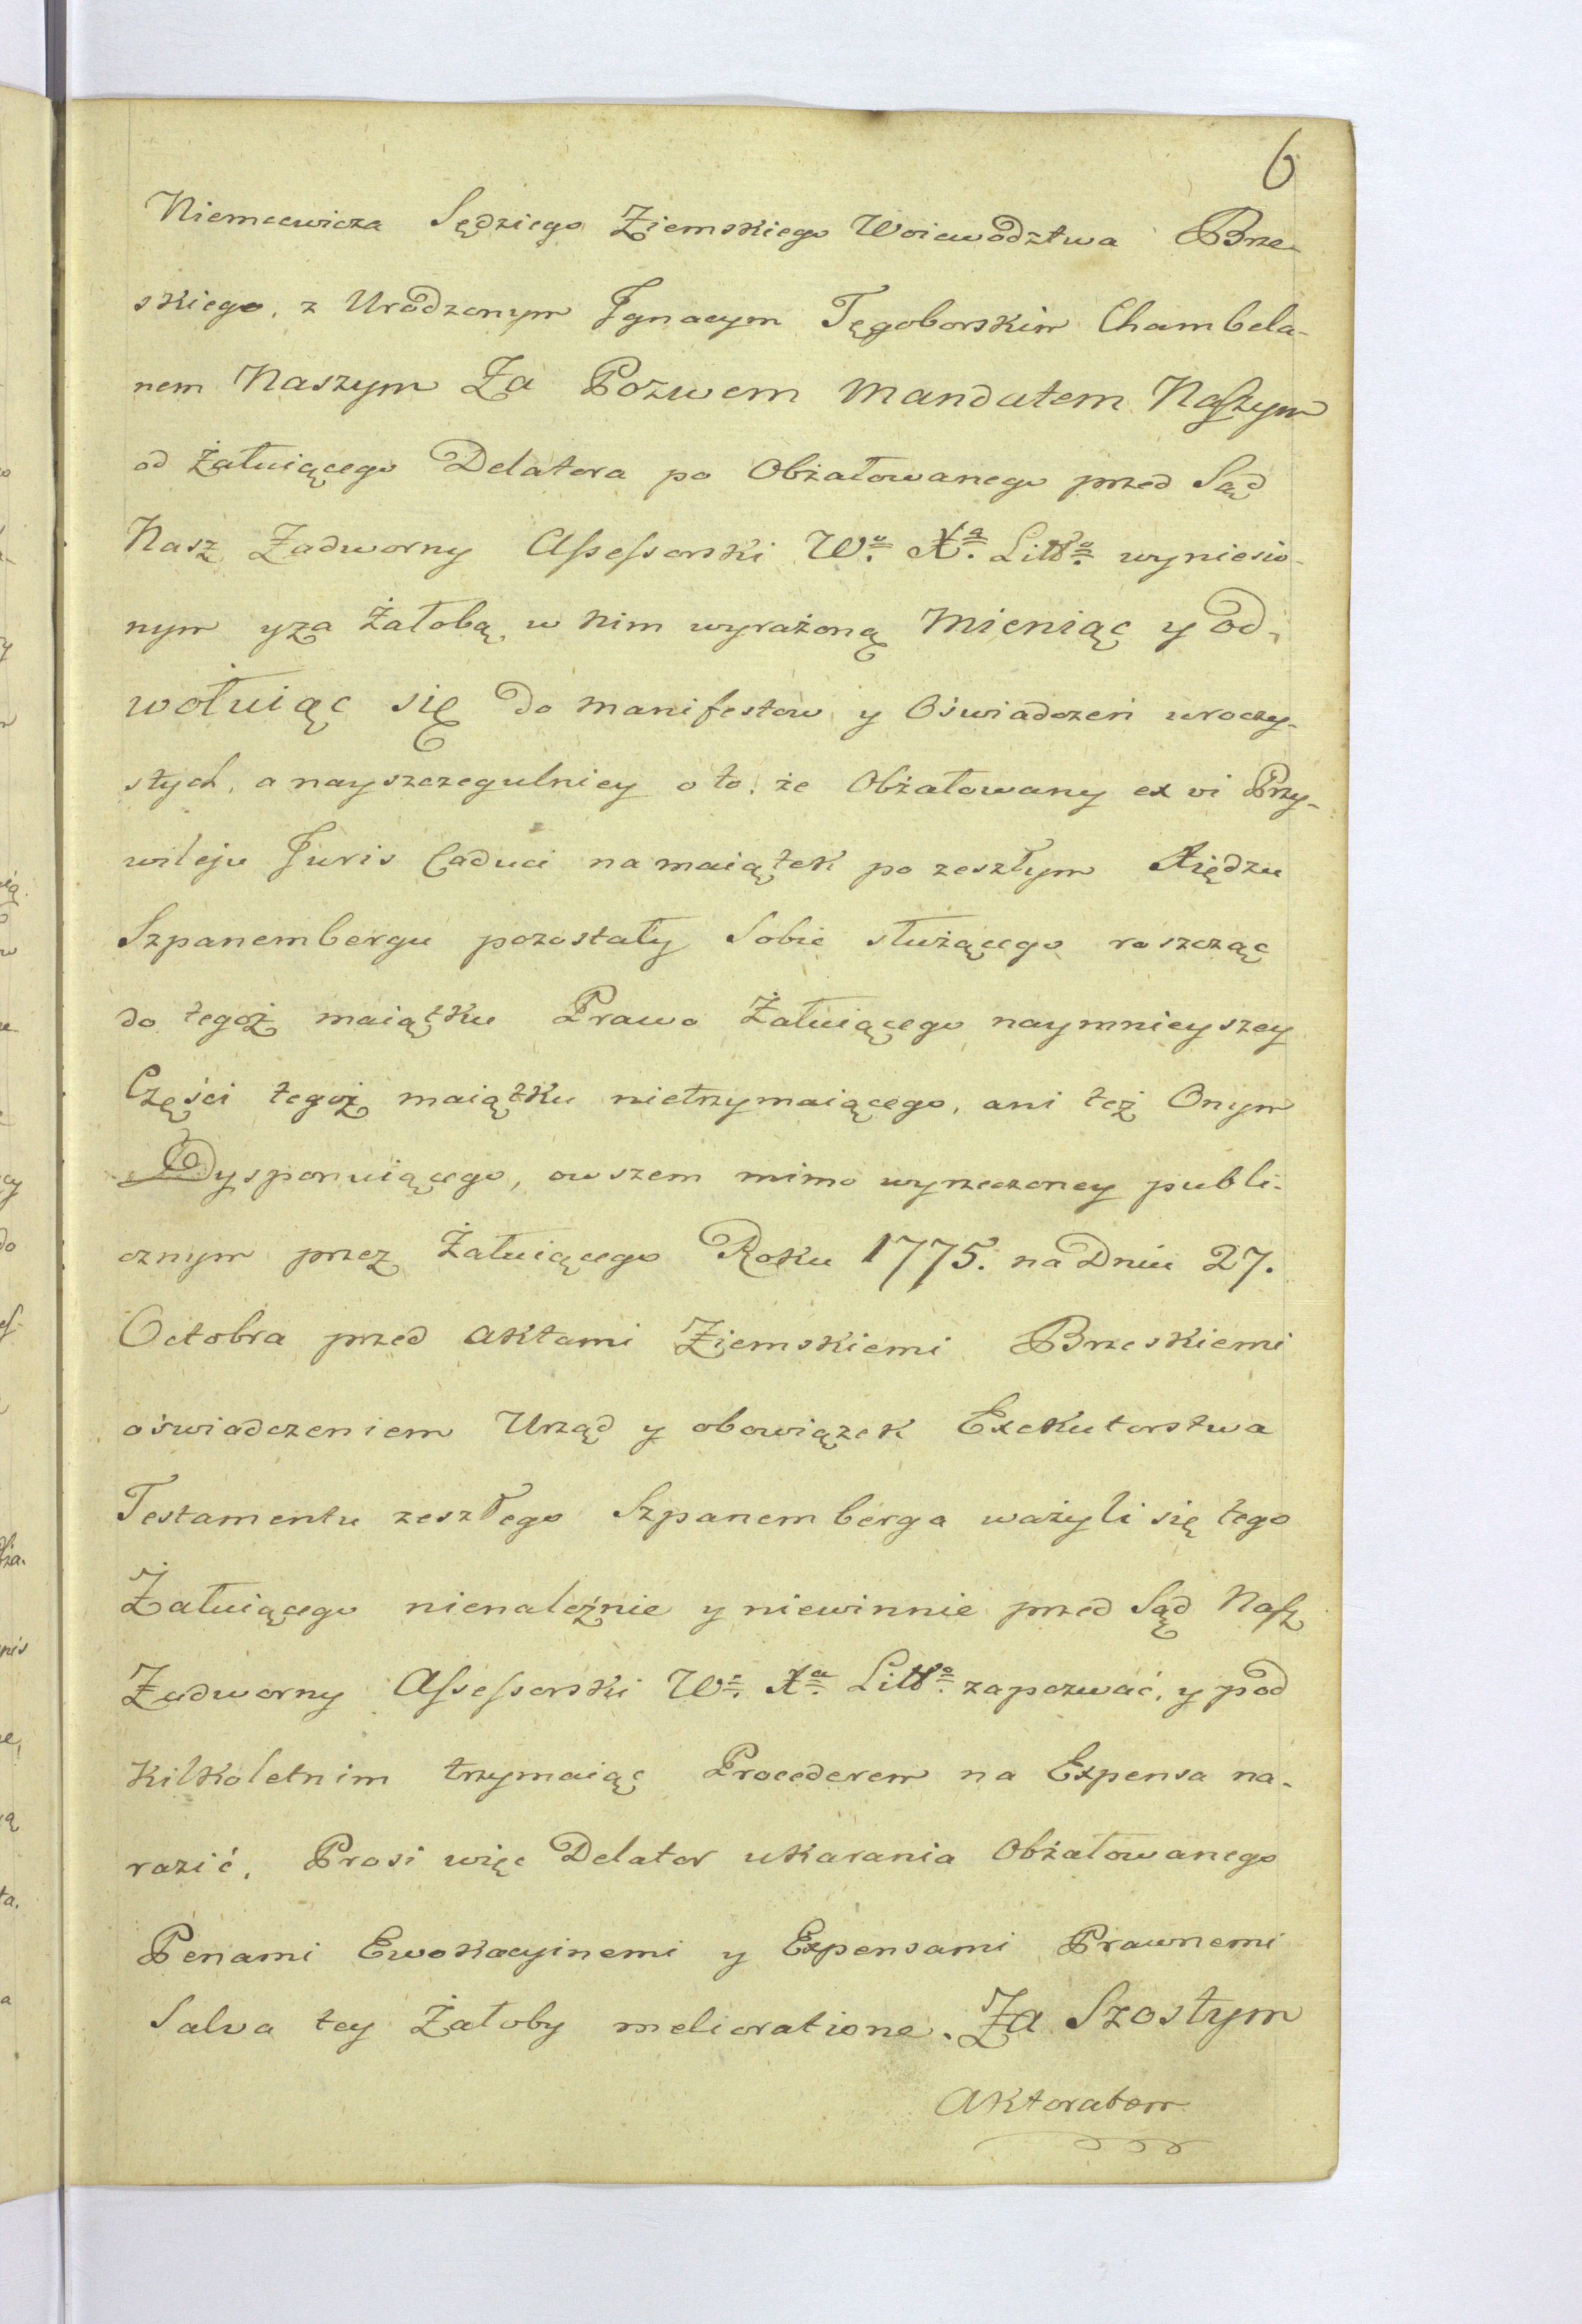 6
Niemcewicza Sędziego Ziemskiego Woiewodztwa Brze-
skiego, z Urodzonym Ignacym Tęgoborskim Chambela-
nem Naszym Za Pozwem Mandatem Naszym
od Żałuiącego Delatora po Obżałowanego przed Sąd
Nasz Zadworny Assessorski Wo. Xa. Litto. wyniesio-
nym y za Żałobą w nim wyrażoną Mieniąc y od-
wołuiąc się do Manifestow y Oświadczeń uroczy-
stych, a nayszczegulniey o to, że Obżałowany ex vi Przy-
wileju Juris Caduci na maiątek po zeszłym Xiędzu
Szpanembergu pozostały Sobie służącego roszcząc
do tegoż maiątku Prawo Żałuiącego naymnieyszey
Części tegoż maiątku nietrzymaiącego, ani też Onym
Dysponuiącego, owszem mimo wyrzeczoney publi-
cznym przez Żałuiącego Roku 1775. na Dniu 27.
Octobra przed Aktami Ziemskiemi Brzeskiemi
oświadczeniem Urząd y obowiązek Exekutorstwa
Testamentu zeszłego Szpanemberga ważyli się tego
Żałuiącego nienależnie y niewinnie przed Sąd Nasz
Zadworny Assessorski Wo. Xa. Litto. zapozwać, y pod
Kilkoletnim trzymaiąc Procederem na Expensa na-
razić, Prosi więc Delator ukarania Obżałowanego
Penami Ewokacyinemi y Expensami Prawnemi
Salva tey Żałoby melioratione. Za Szostym
Aktoratem